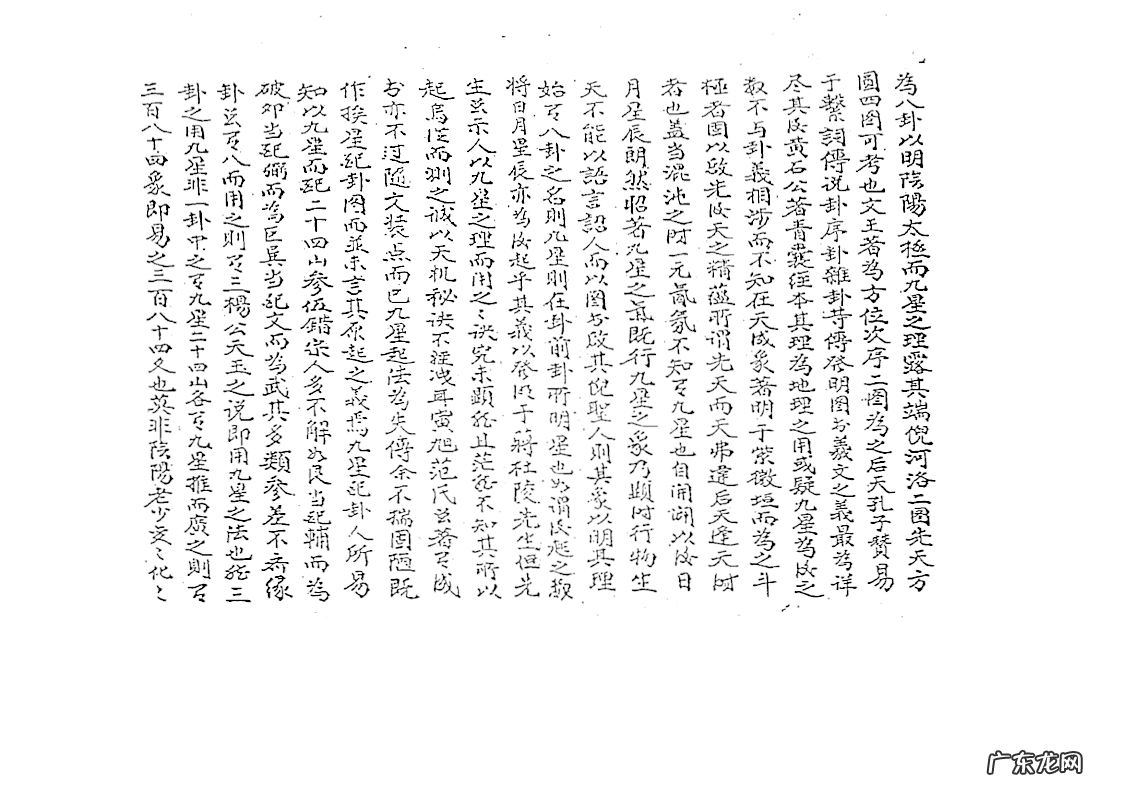 為八卦以明陰陽太極而九星之理露其端倪河洛二图先天方
圓四图可考也文王著為方位次序二图為之后天孔子贊易
于繫詞傳说卦序卦雜卦等傳發明图书義文之義最為详
尽其後黄石公著青囊經本其理為地理之用或疑九星為後之
数不与卦義相涉而不知在天成象著明于紫微垣而為之斗
極者固以啟先後天之精蕴所谓先天而天弗違后天逢天时
者也蓋当混沌之时一元氤氛不知有九星也自開闢以後日
月星辰朗然昭著九星之氣既行九星之象乃顯时行物生
天不能以語言詔人而以图书啟其倪聖人則其象以明其理
始有八卦之名則九星則在卦前卦所明星也如谓後起之数
将日月星辰亦為後起乎其義以發明于蔣杜陵先生但先
生只示人以九星之理而用之之诀究未顯然且茫然不知其所以
起焉從而测之诚以天机秘诀不轻洩耳寅旭范氏只著有成
书亦不过随文装点而已九星起法為失傳余不揣固陋既
作挨星起卦图而並未言其原起之義焉九星起卦人所易
知以九星而起二十四山参伍錯综人多不解如艮当起輔而為
破卯当起弼而為巨巽当起文而為武其多類参差不齐缘
卦只有八而用之則有三楊公天玉之说即用九星之法也然三
卦之用九星非一卦中之有九星二十四山各有九星推而廣之則有
三百八十四象即易之三百八十四爻也莫非陰陽老少变之化之
广东龙网